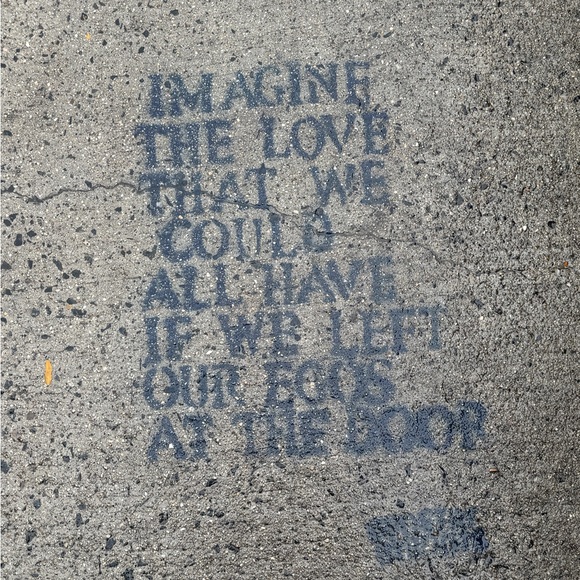 IMAGINE
THE LOVE
THAT WE
COULD
ALL HAVE
IF WE LEFT
OUR EGOS
AT THE DOOR